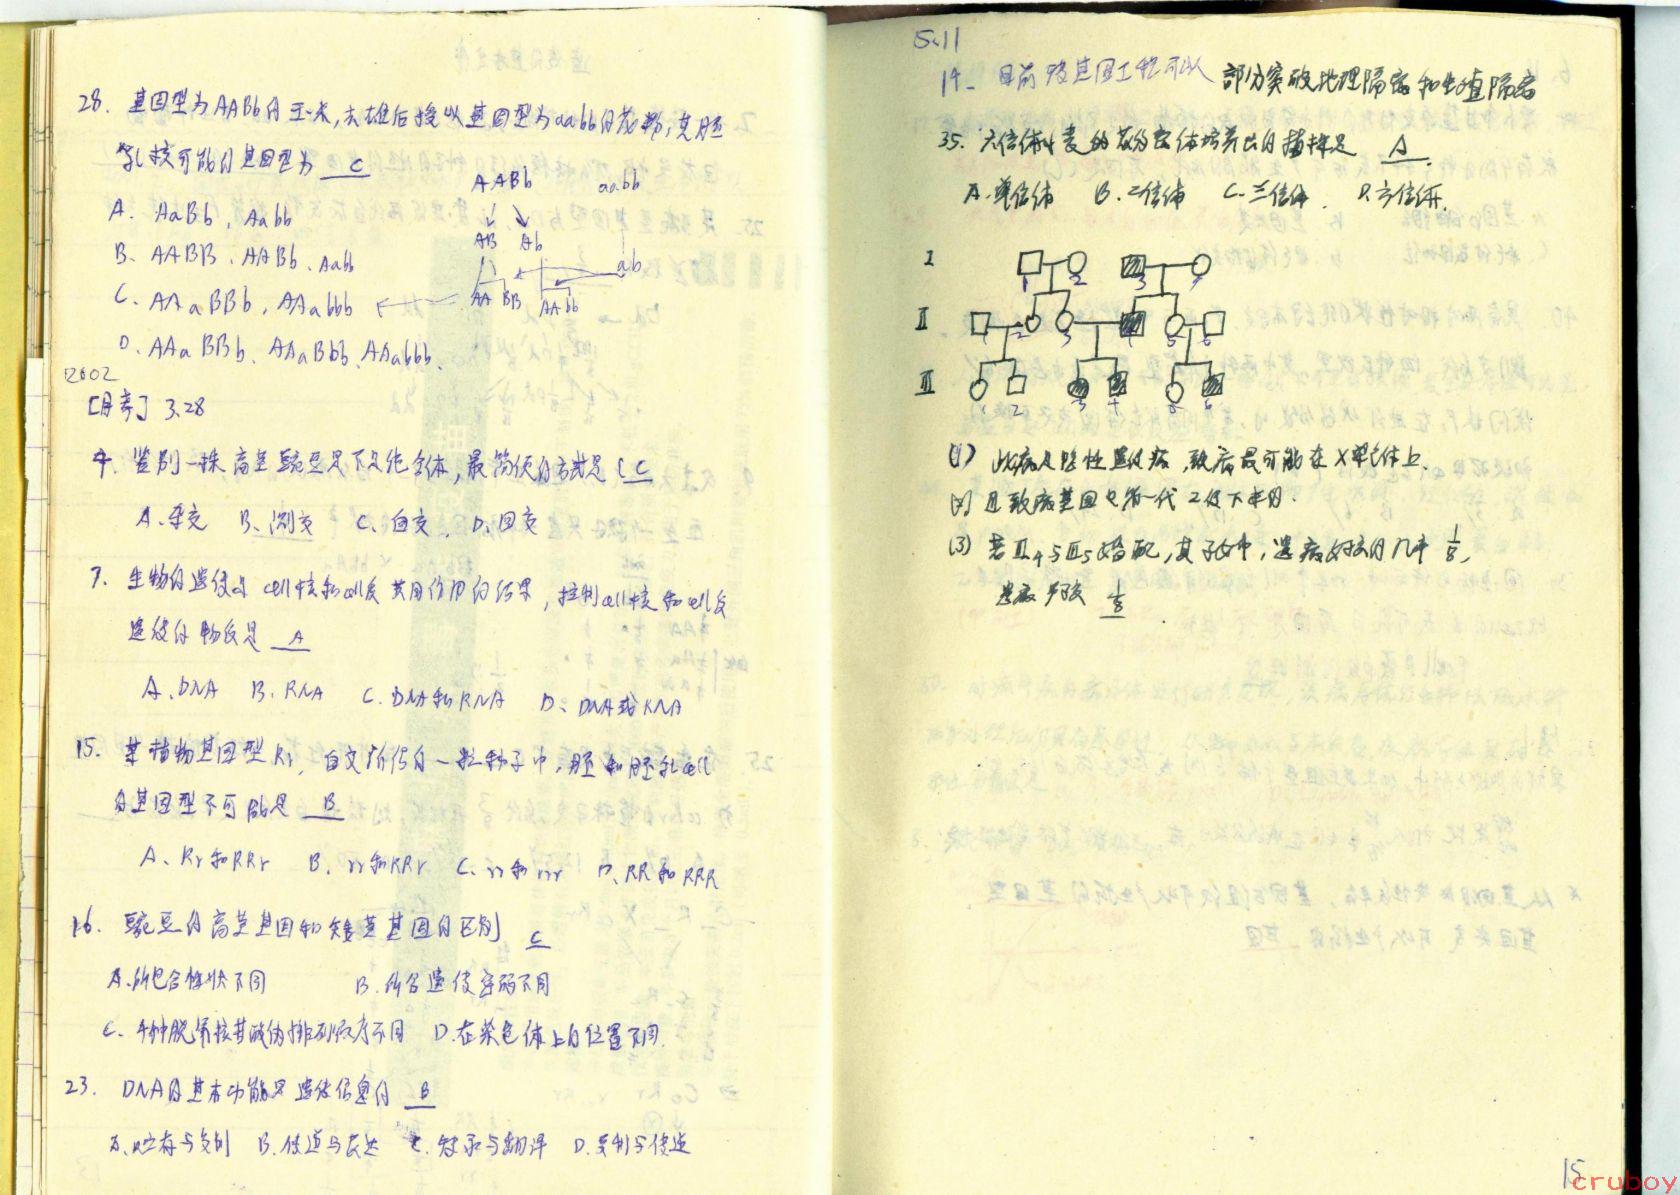 28. 基因型为AABb的玉米,去雄后授以基因型为aabb的花粉,其胚
乳核可能的基因型为 C
A. AaBb, Aabb
B. AABB. AABb. Aabb
C. AAaBBb, AAabbb
D. AAaBBb、AAaBbb、AAabbb.
AABb aabb
AB Ab
ab
AAaBBb AAabb
2002
[月考] 3.28
4. 鉴别一株高茎豌豆是不是纯合体,最简便的方法是( C
A. 杂交 B. 测交 C. 自交. D. 回交
7. 生物的遗传是cell核和cell质共同作用的结果,控制cell核和cell质
遗传的物质是 A
A. DNA B. RNA C. DNA和RNA D. DNA或RNA
15. 某植物基因型Rr, 自交所得的一粒种子中,胚和胚乳cell
的基因型不可能是 B
A. Rr和RRr B. rr和RRr C. rr和rrr D. RR和RRR
16. 豌豆的高茎基因和矮茎基因的区别 C
A. 所包含性状不同 B. 所含遗传密码不同
C. 4种脱氧核苷酸的排列顺序不同 D. 在染色体上的位置不同.
23. DNA的基本功能是遗传信息的 B
A. 贮存与复制 B. 传递与表达 C. 转录与翻译 D. 复制与传递
5.11
19. 目前 基因工程可以 部分突破地理隔离和生殖隔离
35. 六倍体小麦的花药离体培养出的植株是 A.
A. 单倍体 B. 二倍体 C. 三倍体. D. 六倍体.
I 1 2 3 4
II 1 2 3 4 5 6
III 1 2 3 4 5 6
(1) 此病是隐性遗传病,致病最可能在X染色体上.
(2) 且致病基因由第一代2传下来的.
(3) 若III4与III5婚配,其子女中,患病女孩的几率 1/8,
患病男孩 1/8
15
cruboy